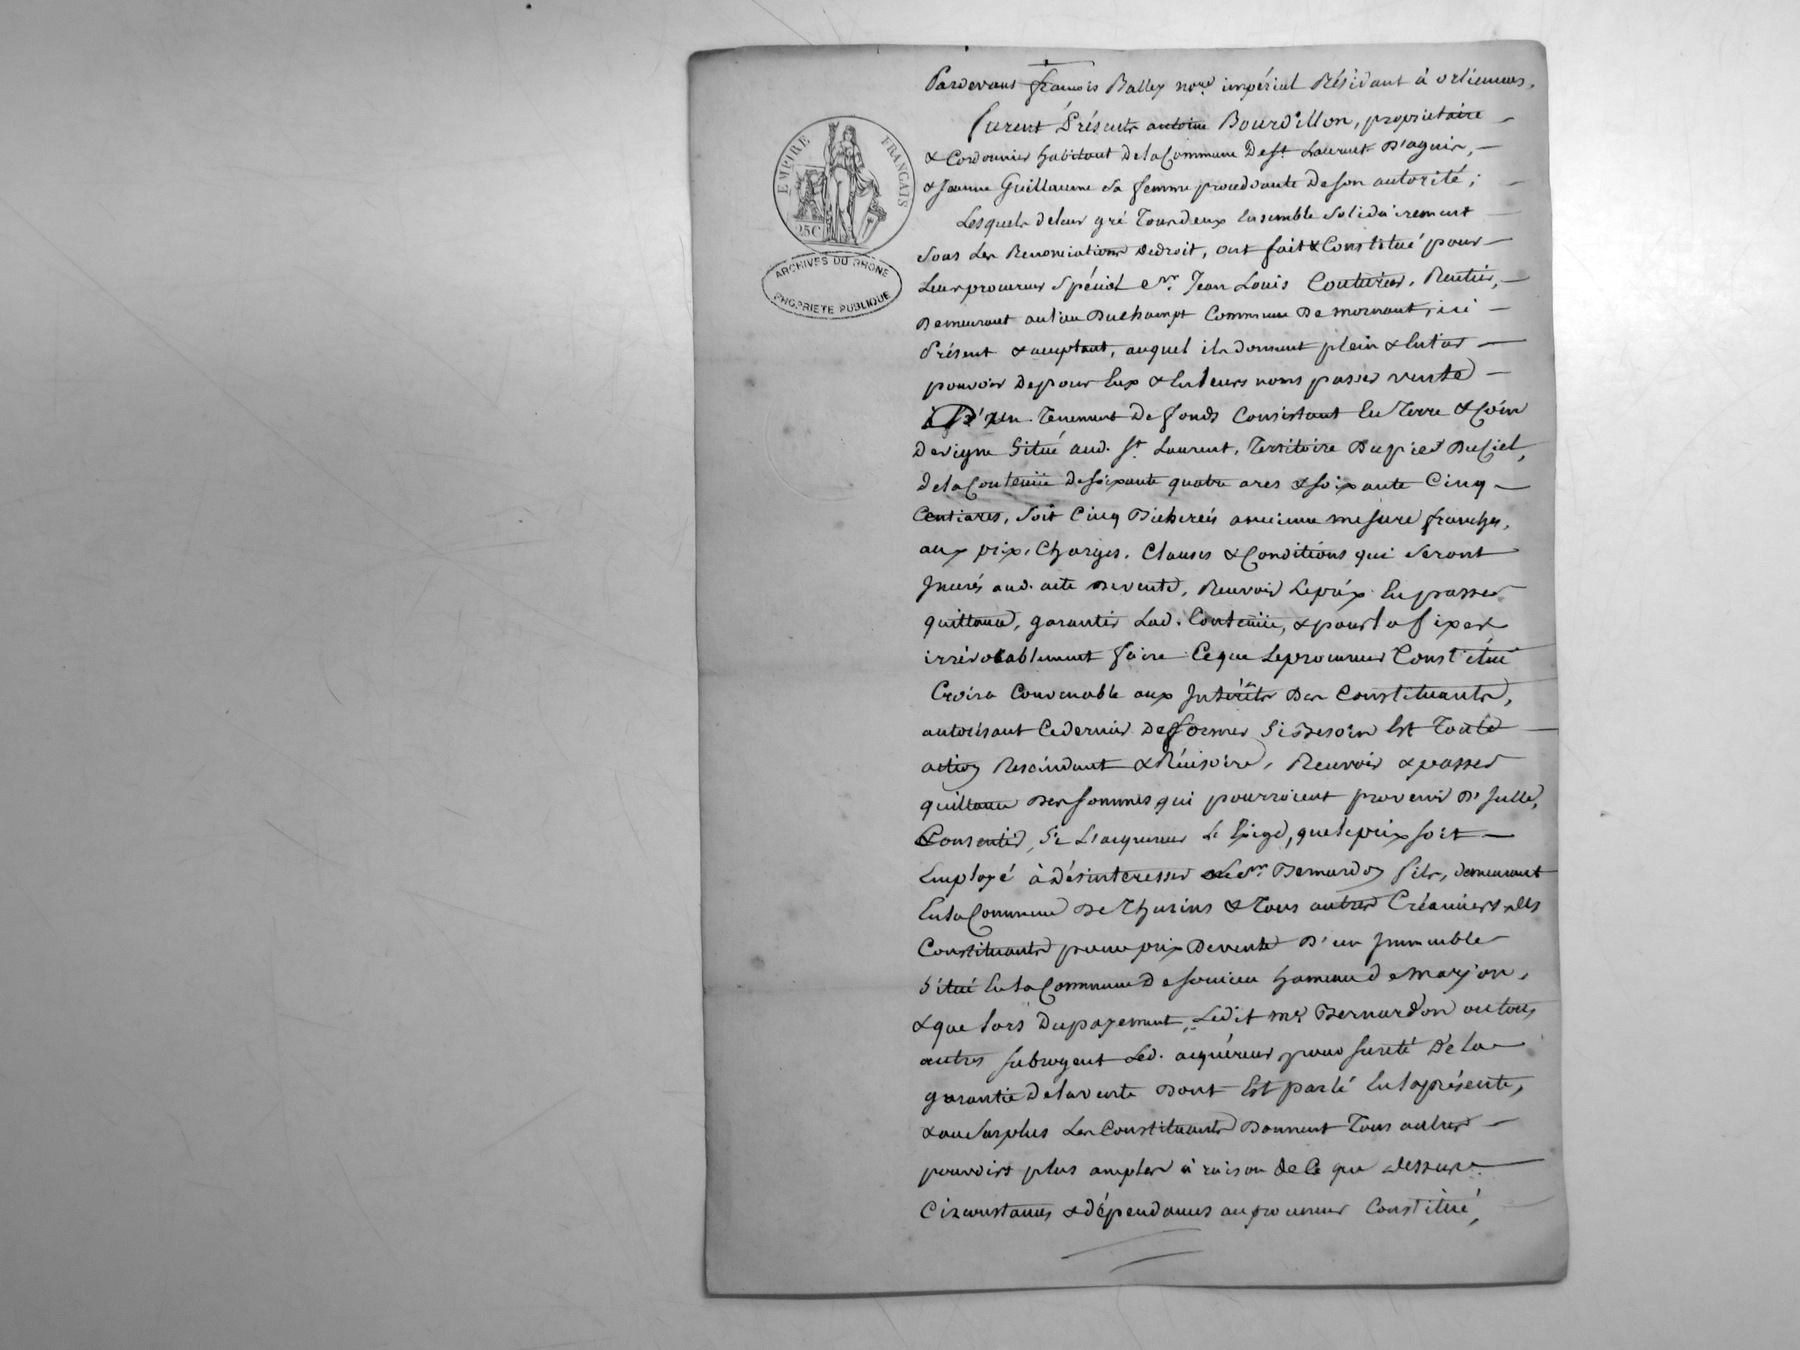 Pardevant françois Balley nore. impérial Résidant à orlienas,
EMPIRE FRANCAIS
25C
ARCHIVES DU RHONE
PROPRIETE PUBLIQUE
furent Présents antoine Bourdillon, propriétaire
& Cordonnier habitant de la Commune De st. Laurent D'agnir,
& Jeanne Guillaume sa femme procedante De son autorité;
Lesquels de leur gré Tous deux Ensemble Solidairement
sous Les Renonciations De droit, ont fait & Constitué pour
Leur procureur Spécial Sr. Jean Louis Couturier, Rentier,
Demeurant au lieu Duchampt Commune De mornant, ici
Présent & acceptant, auquel ils donnent plein & Entier
pouvoir De pour Eux & En leurs noms passer vente
D'un Tenement De fonds Consistant En Terre & Coin
De vigne Situé aud. St. Laurent, Territoire Du pied Du Ciel,
de la Contenüe De soixante quatre ares & soixante Cinq
Centiares, soit Cinq Bicherées ancienne mesure franches,
aux prix, Charges, Clauses & Conditions qui seront
Inserés aud. acte De vente, Recevoir Le prix En passer
quittance, garantir Lad. Contenüe, & pour la fixer
irrévocablement faire Ce que Le procureur Constitué
Croira Convenable aux Intérêts Des Constituants,
autorisant Ce dernier De former Si Besoin Est Toute
action Rescindant & Récisoire, Recevoir & passer
quittance Des sommes qui pourroient provenir D'Icelle,
Consentir, Si L'acquereur L'Exige, que le prix soit
Employé à désinteresser le Sr. Bernardon fils, demeurant
En la Commune De Thurins & Tous autres Créanciers des
Constituants pour prix De vente D'un Immeuble
Situé En la Commune De soucieu hameau de marjon,
& que lors Du payement, Ledit mr. Bernardon ou tous
autres subrogent Led. acquéreur pour sureté De la
garantie De la vente Dont Est parlé En la présente,
& au Surplus Les Constituants Donnent Tous autres
pouvoirs plus amples à raison de Ce que dessus
Circonstances & dépendances au procureur Constitué,